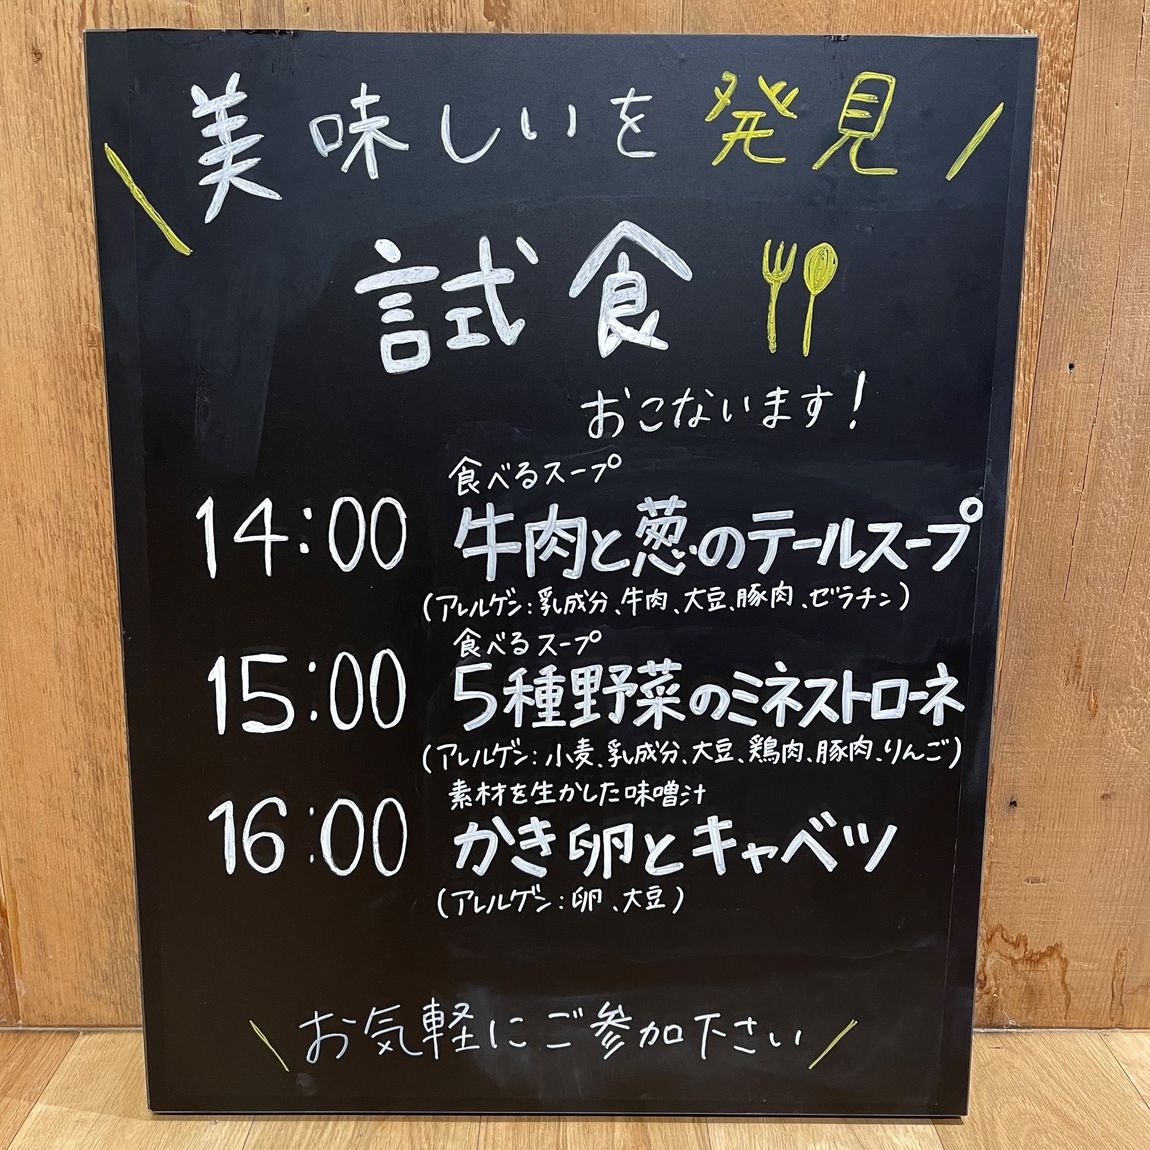 美味しいを発見
試食
おこないます!
食べるスープ
14:00 牛肉と葱のテールスープ
(アレルゲン:乳成分、牛肉、大豆、豚肉、ゼラチン)
食べるスープ
15:00 5種野菜のミネストローネ
(アレルゲン:小麦、乳成分、大豆、鶏肉、豚肉、りんご)
素材を生かした味噌汁
16:00 かき卵とキャベツ
(アレルゲン:卵、大豆)
お気軽にご参加下さい